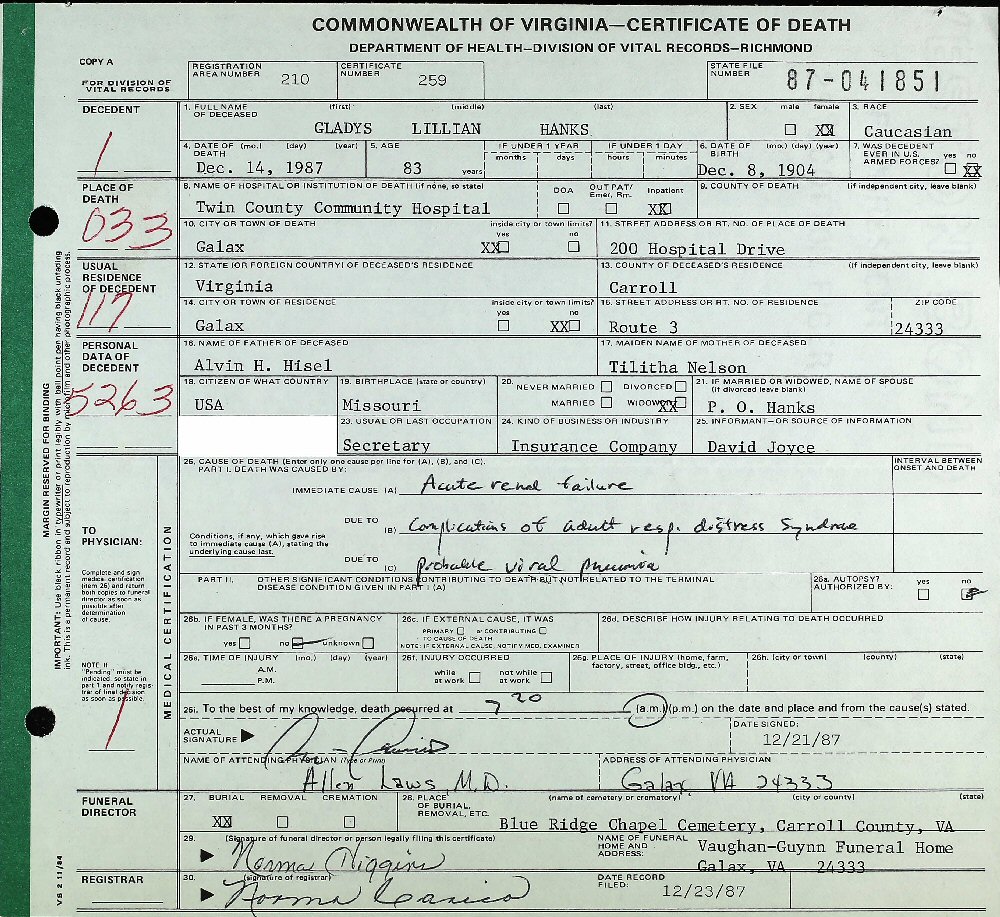 COMMONWEALTH OF VIRGINIA—CERTIFICATE OF DEATH
DEPARTMENT OF HEALTH—DIVISION OF VITAL RECORDS—RICHMOND
COPY A
FOR DIVISION OF VITAL RECORDS
REGISTRATION AREA NUMBER 210
CERTIFICATE NUMBER 259
STATE FILE NUMBER 87-041851
DECEDENT
1
1. FULL NAME OF DECEASED (first) (middle) (last)
GLADYS LILLIAN HANKS
2. SEX male female XX
3. RACE Caucasian
4. DATE OF DEATH (mo.) (day) (year)
Dec. 14, 1987
5. AGE 83 years
IF UNDER 1 YEAR months days
IF UNDER 1 DAY hours minutes
6. DATE OF BIRTH (mo.) (day) (year)
Dec. 8, 1904
7. WAS DECEDENT EVER IN U.S. ARMED FORCES? yes no XX
PLACE OF DEATH
033
8. NAME OF HOSPITAL OR INSTITUTION OF DEATH (if none, so state)
Twin County Community Hospital
DOA OUT PAT/ Emer. Rm. Inpatient XX
9. COUNTY OF DEATH (if independent city, leave blank)
10. CITY OR TOWN OF DEATH inside city or town limits? yes no
Galax XX
11. STREET ADDRESS OR RT. NO. OF PLACE OF DEATH
200 Hospital Drive
USUAL RESIDENCE OF DECEDENT
117
12. STATE (OR FOREIGN COUNTRY) OF DECEASED'S RESIDENCE
Virginia
13. COUNTY OF DECEASED'S RESIDENCE (if independent city, leave blank)
Carroll
14. CITY OR TOWN OF RESIDENCE inside city or town limits? yes no
Galax XX
15. STREET ADDRESS OR RT. NO. OF RESIDENCE ZIP CODE
Route 3 24333
PERSONAL DATA OF DECEDENT
5263
16. NAME OF FATHER OF DECEASED
Alvin H. Hisel
17. MAIDEN NAME OF MOTHER OF DECEASED
Tilitha Nelson
18. CITIZEN OF WHAT COUNTRY
USA
19. BIRTHPLACE (state or country)
Missouri
20. NEVER MARRIED DIVORCED
MARRIED WIDOWED XX
21. IF MARRIED OR WIDOWED, NAME OF SPOUSE (if divorced leave blank)
P. O. Hanks
23. USUAL OR LAST OCCUPATION
Secretary
24. KIND OF BUSINESS OR INDUSTRY
Insurance Company
25. INFORMANT—OR SOURCE OF INFORMATION
David Joyce
MARGIN RESERVED FOR BINDING
IMPORTANT: Use black ribbon in typewriter or print legibly with ball point pen having black unfading ink. This is a permanent record and subject to reproduction by microfilm and other photographic process.
TO PHYSICIAN:
Complete and sign medical certification (item 26) and return both copies to funeral director as soon as possible after determination of cause.
NOTE !!
"Pending" must be indicated, so state in part 1 and notify registrar of final decision as soon as possible.
1
MEDICAL CERTIFICATION
26. CAUSE OF DEATH (Enter only one cause per line for (A), (B), and (C).
PART I. DEATH WAS CAUSED BY:
INTERVAL BETWEEN ONSET AND DEATH
IMMEDIATE CAUSE (A) Acute renal failure
Conditions, if any, which gave rise to immediate cause (A), stating the underlying cause last.
DUE TO (B) Complications of adult resp. distress syndrome
DUE TO (C) Probable viral pneumonia
PART II. OTHER SIGNIFICANT CONDITIONS CONTRIBUTING TO DEATH BUT NOT RELATED TO THE TERMINAL DISEASE CONDITION GIVEN IN PART I (A)
26a. AUTOPSY? AUTHORIZED BY: yes no
26b. IF FEMALE, WAS THERE A PREGNANCY IN PAST 3 MONTHS?
yes no unknown
26c. IF EXTERNAL CAUSE, IT WAS
PRIMARY or CONTRIBUTING TO CAUSE OF DEATH
NOTE: IF EXTERNAL CAUSE, NOTIFY MED. EXAMINER
26d. DESCRIBE HOW INJURY RELATING TO DEATH OCCURRED
26e. TIME OF INJURY (mo.) (day) (year)
A.M.
P.M.
26f. INJURY OCCURRED
while at work not while at work
26g. PLACE OF INJURY (home, farm, factory, street, office bldg., etc.)
26h. (city or town) (county) (state)
26i. To the best of my knowledge, death occurred at 7 20 (a.m.) (p.m.) on the date and place and from the cause(s) stated.
ACTUAL SIGNATURE
DATE SIGNED:
12/21/87
NAME OF ATTENDING PHYSICIAN (Type or Print)
Allen Laws, M.D.
ADDRESS OF ATTENDING PHYSICIAN
Galax, VA 24333
FUNERAL DIRECTOR
27. BURIAL REMOVAL CREMATION
XX
28. PLACE OF BURIAL, REMOVAL, ETC. (name of cemetery or crematory) (city or county) (state)
Blue Ridge Chapel Cemetery, Carroll County, VA
29. (Signature of funeral director or person legally filing this certificate)
Norma Higgins
NAME OF FUNERAL HOME AND ADDRESS:
Vaughan-Guynn Funeral Home
Galax, VA 24333
REGISTRAR
30. (signature of registrar)
Norma Carico
DATE RECORD FILED: 12/23/87
VS 2 11/84